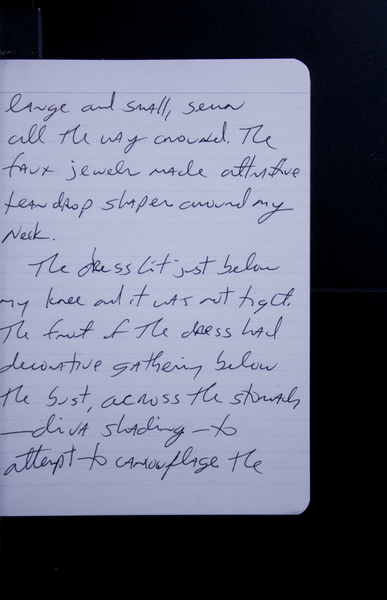 large and small, sewn
all the way around. The
faux jewels made attractive
tear drop shapes around my
Neck.
The dress hit just below
my knee and it was not tight.
The front of the dress had
decorative gathering below
the bust, across the stomach
— diva shading — to
attempt to camouflage the